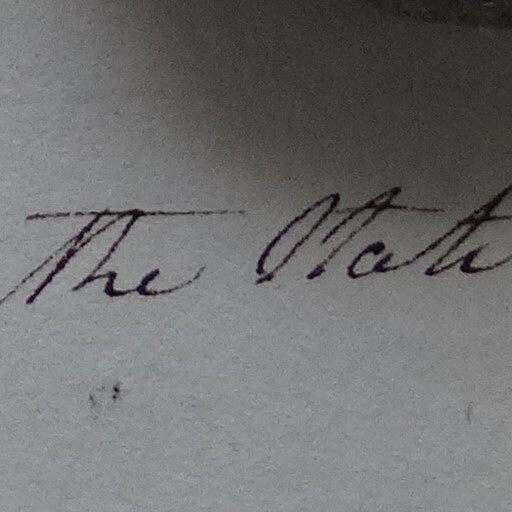 The State